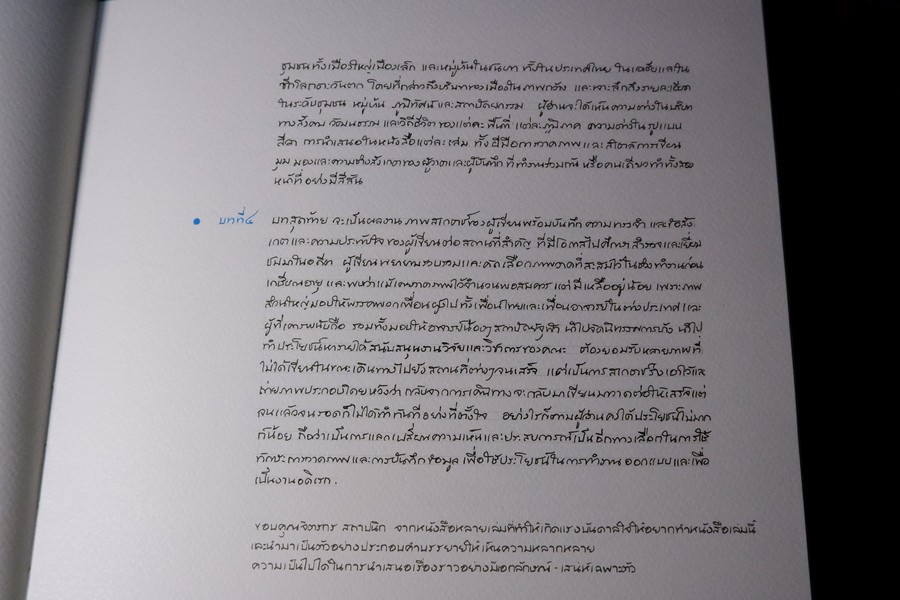 ชุมชนทั้งเมืองใหญ่เมืองเล็ก และหมู่บ้านในชนบท ทั้งในประเทศไทย ในเอเชียและใน
ซีกโลกตะวันตก โดยที่กล่าวถึงบริบทของเมืองในภาพกว้าง และเจาะลึกถึงรายละเอียด
ในระดับชุมชน หมู่บ้าน ภูมิทัศน์และสถาปัตยกรรม ผู้อ่านจะได้เห็นความต่างในบริบท
ทางสังคม วัฒนธรรม และวิถีชีวิตของแต่ละพื้นที่ แต่ละภูมิภาค ความต่างในรูปแบบ
ลีลา การนำเสนอในหนังสือแต่ละเล่ม ทั้งฝีมือการวาดภาพและลีลาการเขียน
มุมมองและความช่างสังเกตของผู้วาดและผู้บันทึก ที่ทำงานร่วมกัน หรือคนเดียวทำทั้งสอง
หน้าที่อย่างมีสีสัน
• บทที่๔ บทสุดท้าย จะเป็นผลงานภาพสเกตช์ของผู้เขียนพร้อมบันทึกความทรงจำ และข้อสัง
เกตและความประทับใจของผู้เขียนต่อสถานที่สำคัญ ที่มีโอกาสไปศึกษาสำรวจและเยี่ยม
ชมมาในอดีต ผู้เขียนพยายามรวบรวมและคัดเลือกภาพวาดที่สะสมไว้ในช่วงทำงานก่อน
เกษียณอายุ และพบว่าแม้เคยวาดภาพไว้จำนวนพอสมควร แต่มีเหลืออยู่น้อย เพราะภาพ
ส่วนใหญ่มอบให้พรรคพวกเพื่อนฝูงไป ทั้งเพื่อนไทยและเพื่อนอาจารย์ในต่างประเทศ และ
ผู้ที่เคารพนับถือ รวมทั้งมอบให้อาจารย์น้องๆ นำไปจัดนิทรรศการบ้าง นำไป
ทำประโยชน์หารายได้สนับสนุนงานวิจัยและวิชาการของคณะ ต้องยอมรับหลายภาพที่
ไม่ได้เขียนในขณะเดินทางไปยังสถานที่ต่างๆจนเสร็จ แต่เป็นการสเกตช์ร่างเอาไว้และ
ถ่ายภาพประกอบโดยหวังว่า กลับจากการเดินทางจะกลับมาเขียนมาวาดต่อให้เสร็จแต่
จนแล้วจนรอดก็ไม่ได้ทำทันทีอย่างที่ตั้งใจ อย่างไรก็ตามผู้อ่านคงได้ประโยชน์ไม่มาก
ก็น้อย ถือว่าเป็นการแลกเปลี่ยนความเห็นและประสบการณ์เป็นอีกทางเลือกในการใช้
ทักษะการวาดภาพและการบันทึกข้อมูล เพื่อใช้ประโยชน์ในการทำงานออกแบบและเพื่อ
เป็นงานอดิเรก.
ขอบคุณจิตรกร สถาปนิก จากหนังสือหลายเล่มที่ทำให้เกิดแรงบันดาลใจให้อยากทำหนังสือเล่มนี้
และนำมาเป็นตัวอย่างประกอบคำบรรยายให้เห็นความหลากหลาย
ความเป็นไปได้ในการนำเสนอเรื่องราวอย่างมีเอกลักษณ์-เสน่ห์เฉพาะตัว